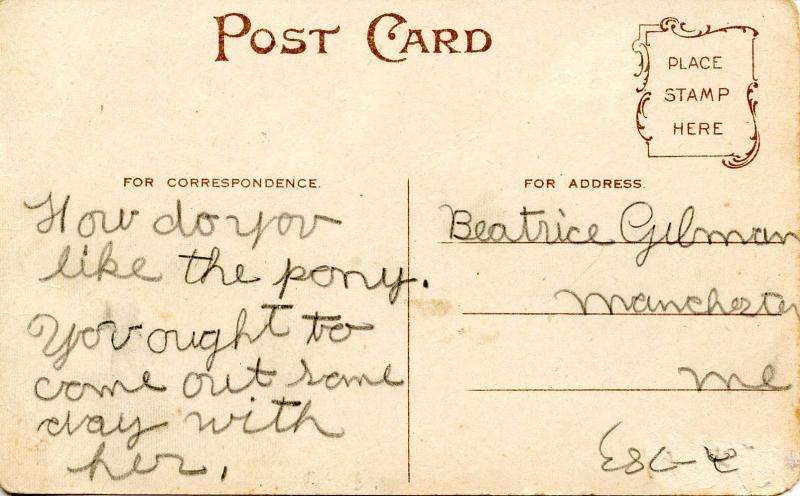 POST CARD
PLACE
STAMP
HERE
FOR CORRESPONDENCE.
How do you
like the pony.
You ought to
come out some
day with
her.
FOR ADDRESS.
Beatrice Gilman
Manchester
Me